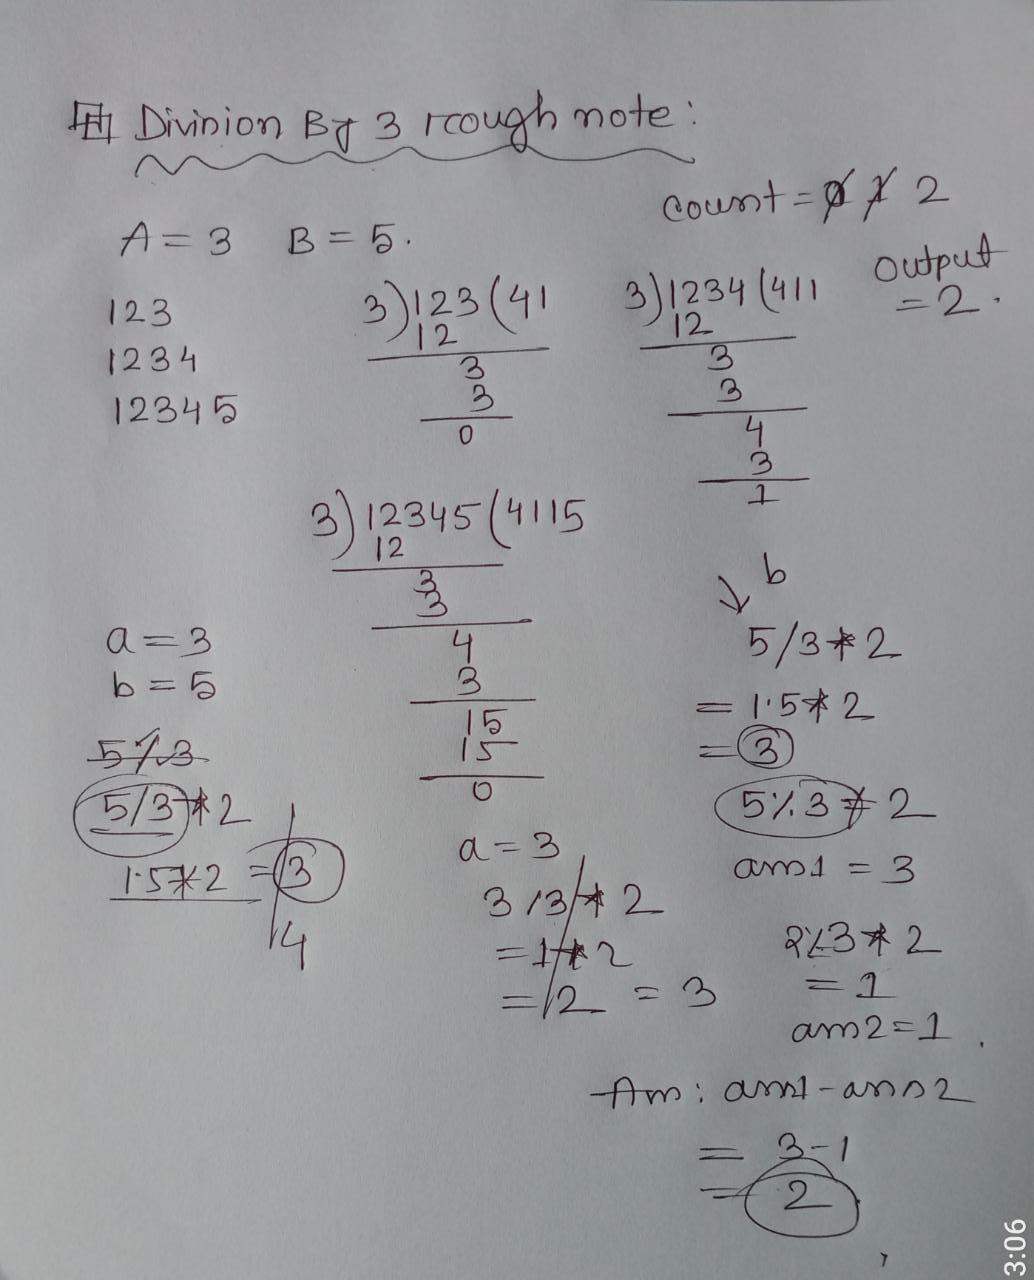 Division By 3 rough note:
count = 0 1 2
A = 3 B = 5.
output
= 2.
123
1234
12345
3)123(41
12
3
3
0
3)1234(411
12
3
3
4
3
1
3)12345(4115
12
3
3
4
3
15
15
0
a = 3
b = 5
5%3
5/3*2
1.5*2 = 3
4
a = 3
3/3*2
= 1*2
= 2 = 3
b
5/3*2
= 1.5*2
= 3
5%3*2
ans1 = 3
2%3*2
= 1
ans2 = 1.
Ans: ans1 - ans2
= 3-1
= 2
3:06